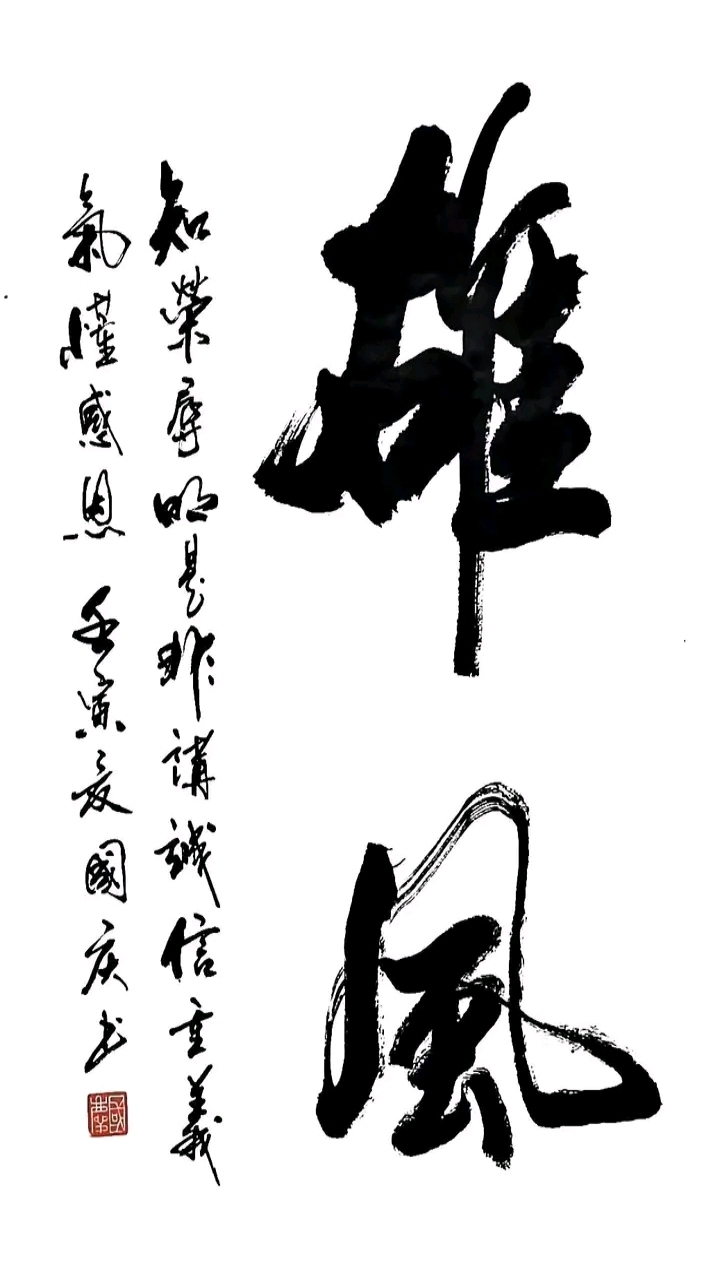 雄風
知榮辱明是非講誠信重義
氣懂感恩 壬寅夏國庆书